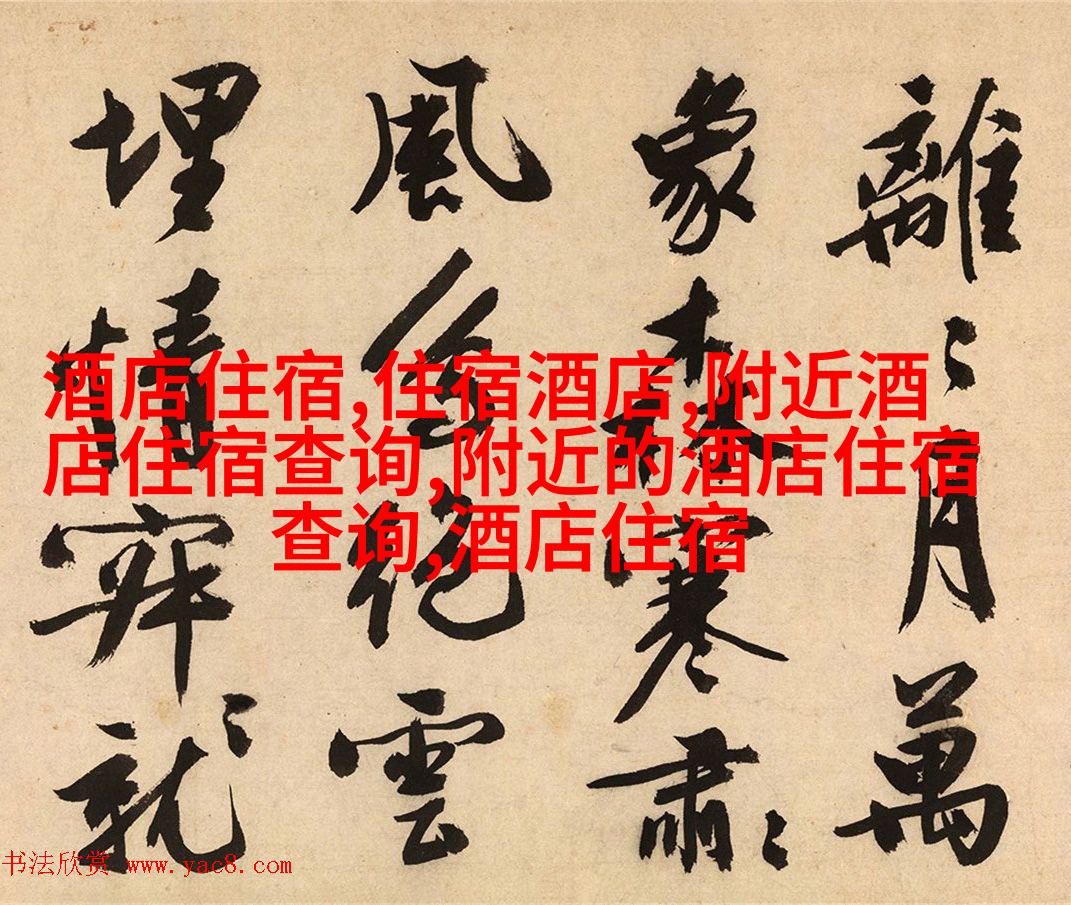 離〻月萬
象森寒肅〻
風絕雲
埋情就〻
酒店住宿,住宿酒店,附近酒
店住宿查询,附近的酒店住宿
查询,酒店住宿
书法欣赏 www.yac8.com